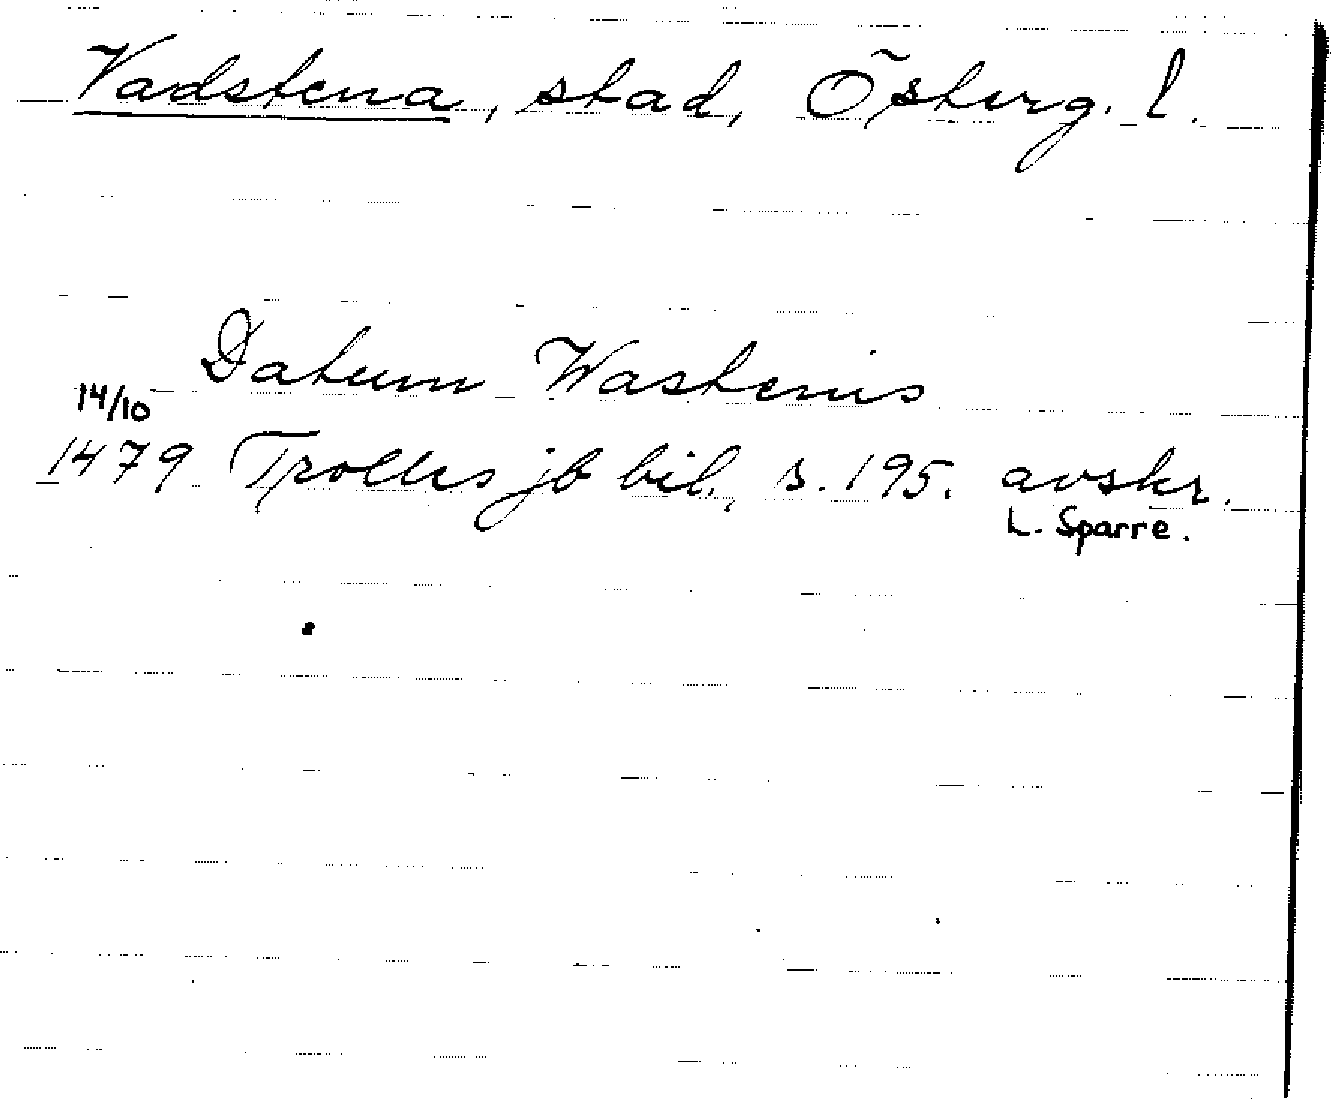 Vadstena, stad, Österg. l.
Datum Wastenis
14/10
1479 Trolles jb bil., s. 195. avskr.
L. Sparre.